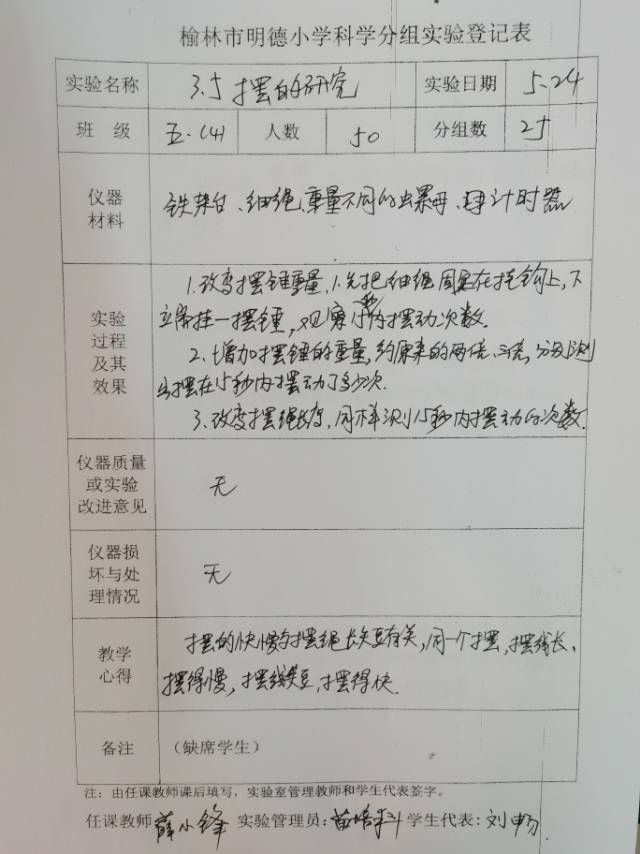 榆林市明德小学科学分组实验登记表
实验名称 3.5 摆的研究 实验日期 5.24
班 级 五.(4) 人数 50 分组数 25
仪器材料 铁架台、细绳、重量不同的螺母、计时器
实验过程及其效果
1.改变摆锤重量,1.先把细绳固定在挂钩上,下
立端挂一摆锤,观察15秒内摆动次数.
2.增加摆锤的重量,约原来的两倍、三倍,分别测
出摆在15秒内摆动了多少次.
3.改变摆绳长度,同样测15秒内摆动的次数.
仪器质量或实验改进意见 无
仪器损坏与处理情况 无
教学心得
摆的快慢与摆绳长短有关,同一个摆,摆线长,
摆得慢,摆线短,摆得快.
备注 (缺席学生)
注:由任课教师课后填写,实验室管理教师和学生代表签字。
任课教师 薛小锋 实验管理员:苗培科 学生代表:刘畅